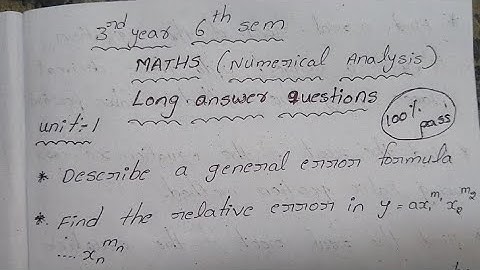 3rd year 6th sem
MATHS (Numerical Analysis)
Long answer questions
100% pass
unit:-1
* Describe a general error formula
* Find the relative error in y = ax₁^m₁ x₂^m₂
.... xₙ^mₙ